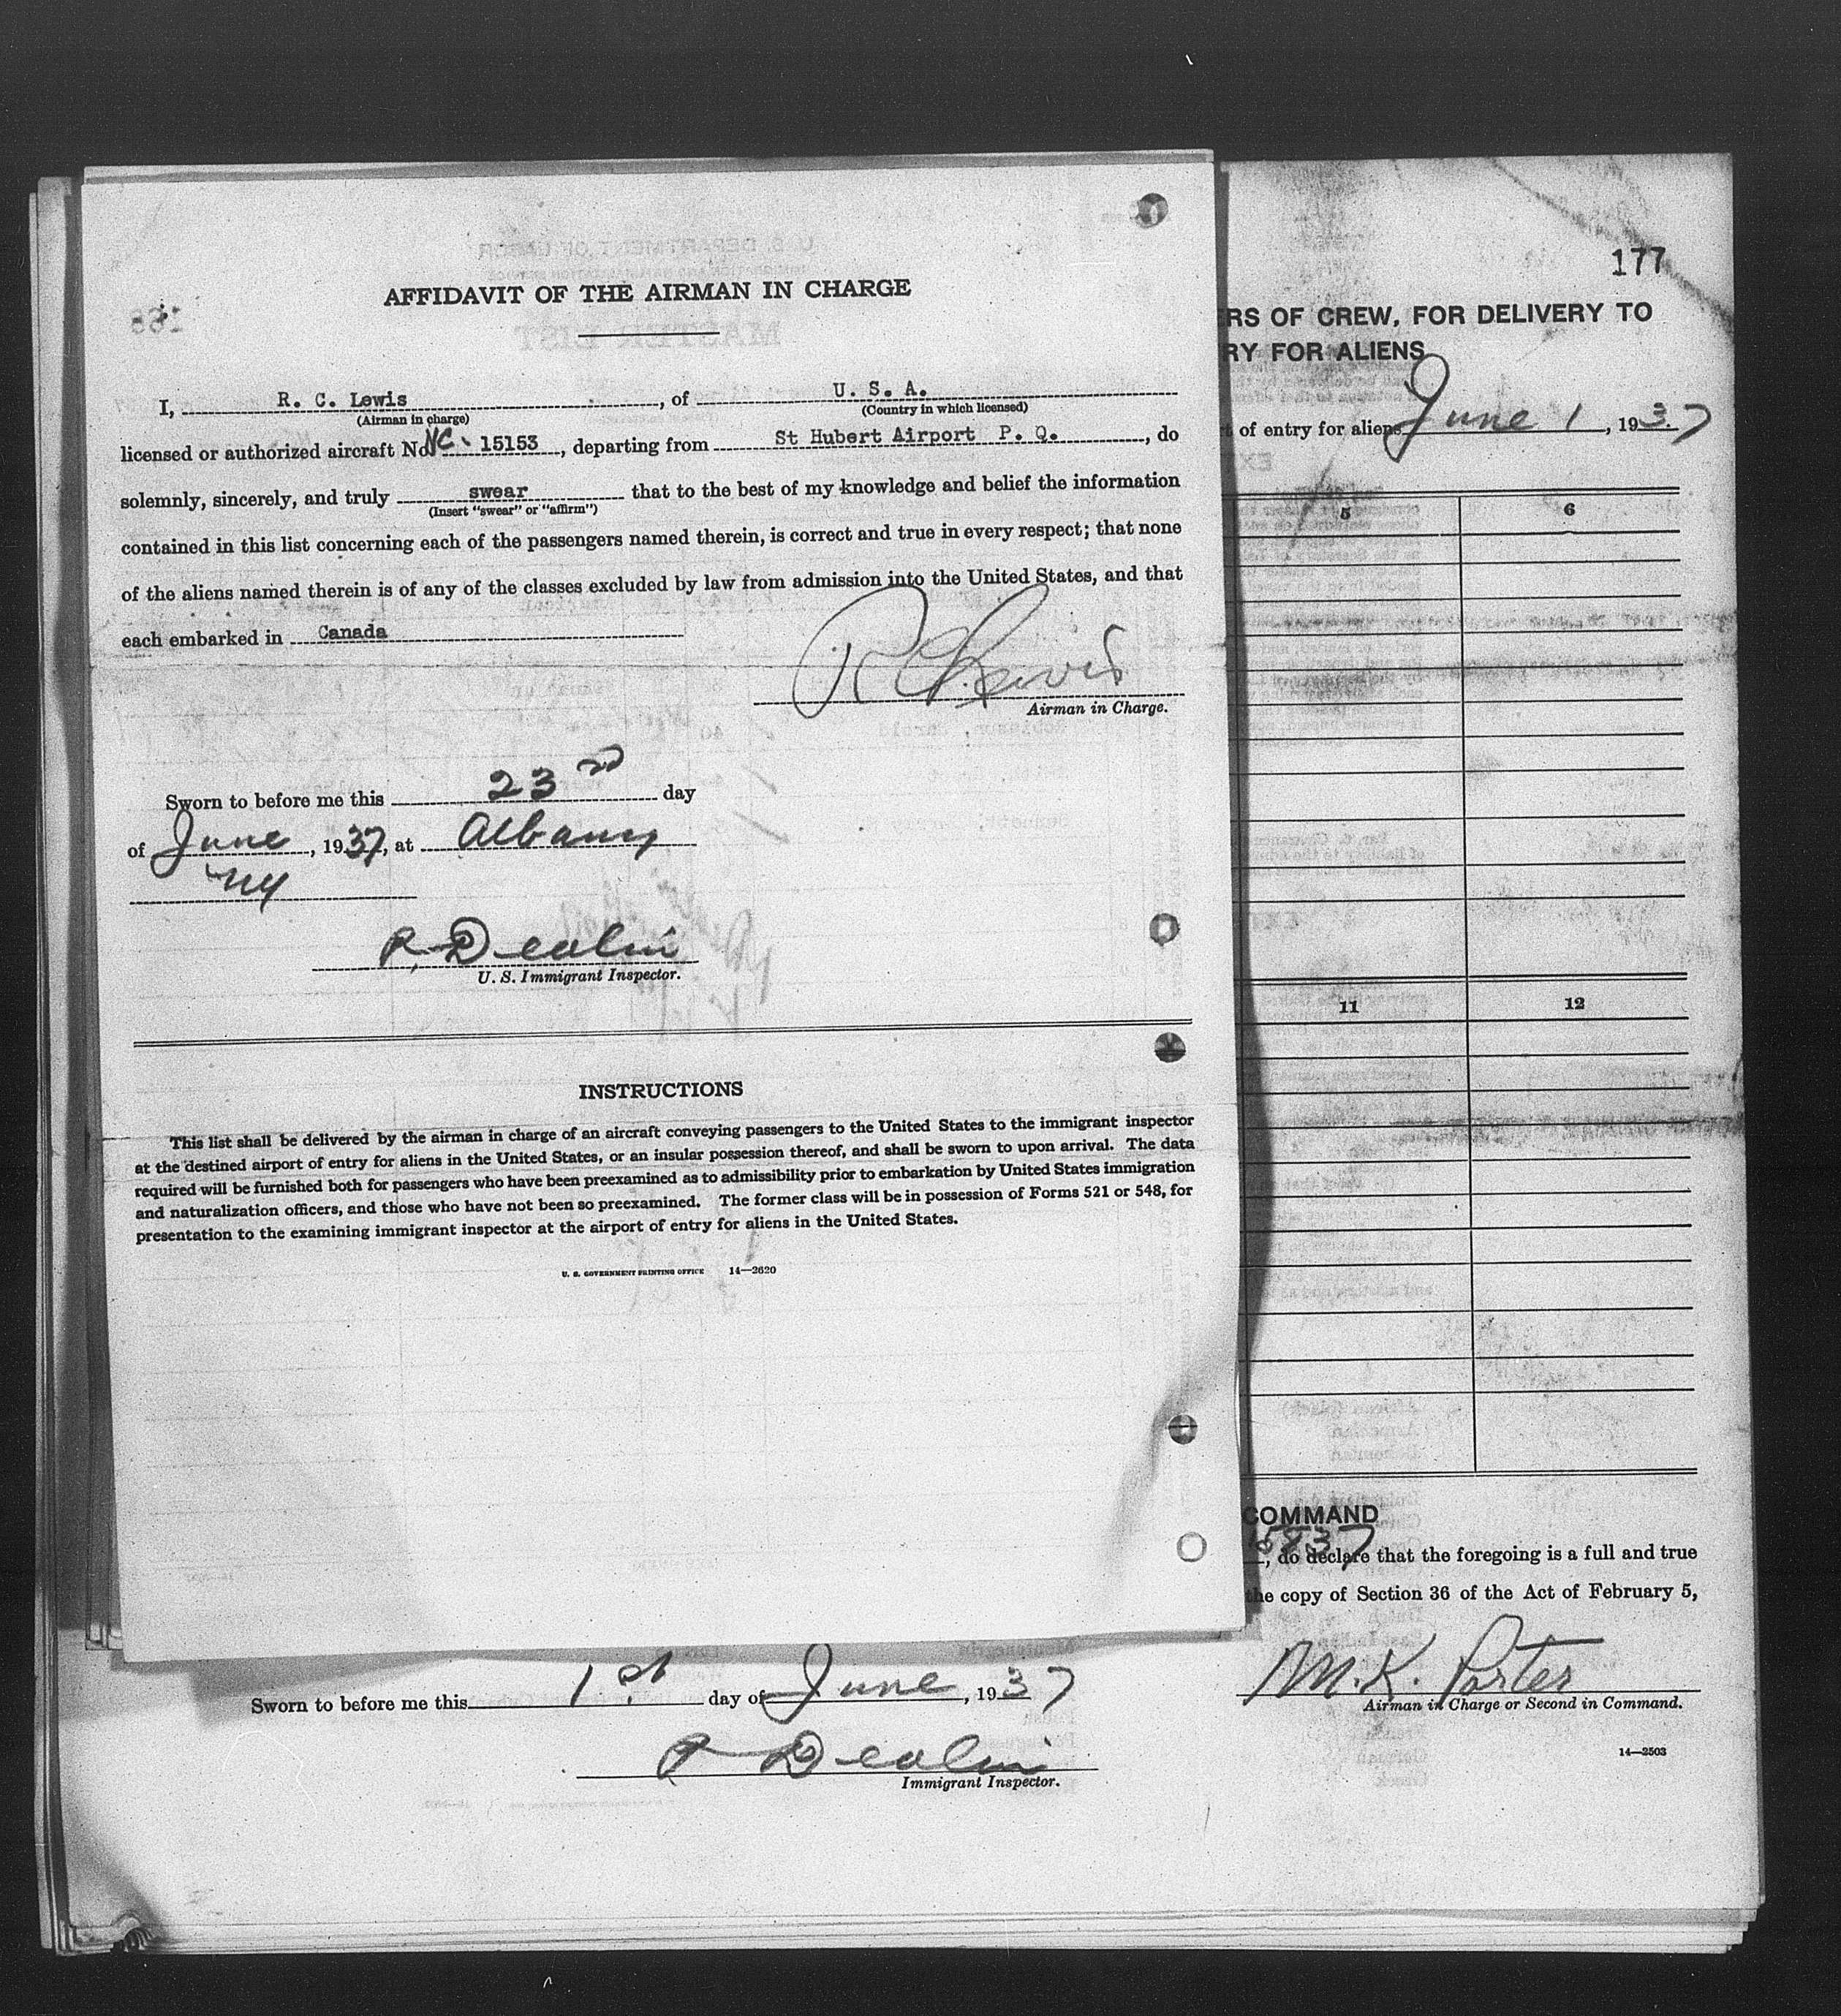 AFFIDAVIT OF THE AIRMAN IN CHARGE
I, R. C. Lewis, of U. S. A.
(Airman in charge) (Country in which licensed)
licensed or authorized aircraft No. NC- 15153, departing from St Hubert Airport P. Q., do
solemnly, sincerely, and truly swear that to the best of my knowledge and belief the information
(Insert "swear" or "affirm")
contained in this list concerning each of the passengers named therein, is correct and true in every respect; that none
of the aliens named therein is of any of the classes excluded by law from admission into the United States, and that
each embarked in Canada
R C Lewis
Airman in Charge.
Sworn to before me this 23rd day
of June, 1937, at Albany
NY
U. S. Immigrant Inspector.
INSTRUCTIONS
This list shall be delivered by the airman in charge of an aircraft conveying passengers to the United States to the immigrant inspector
at the destined airport of entry for aliens in the United States, or an insular possession thereof, and shall be sworn to upon arrival. The data
required will be furnished both for passengers who have been preexamined as to admissibility prior to embarkation by United States immigration
and naturalization officers, and those who have not been so preexamined. The former class will be in possession of Forms 521 or 548, for
presentation to the examining immigrant inspector at the airport of entry for aliens in the United States.
U. S. GOVERNMENT PRINTING OFFICE 14—2620
177
RS OF CREW, FOR DELIVERY TO
RY FOR ALIENS
of entry for aliens June 1, 1937
5 6
11 12
COMMAND
15837
, do declare that the foregoing is a full and true
the copy of Section 36 of the Act of February 5,
M. K. Porter
Airman in Charge or Second in Command.
14—2503
Sworn to before me this 1st day of June, 1937
Immigrant Inspector.